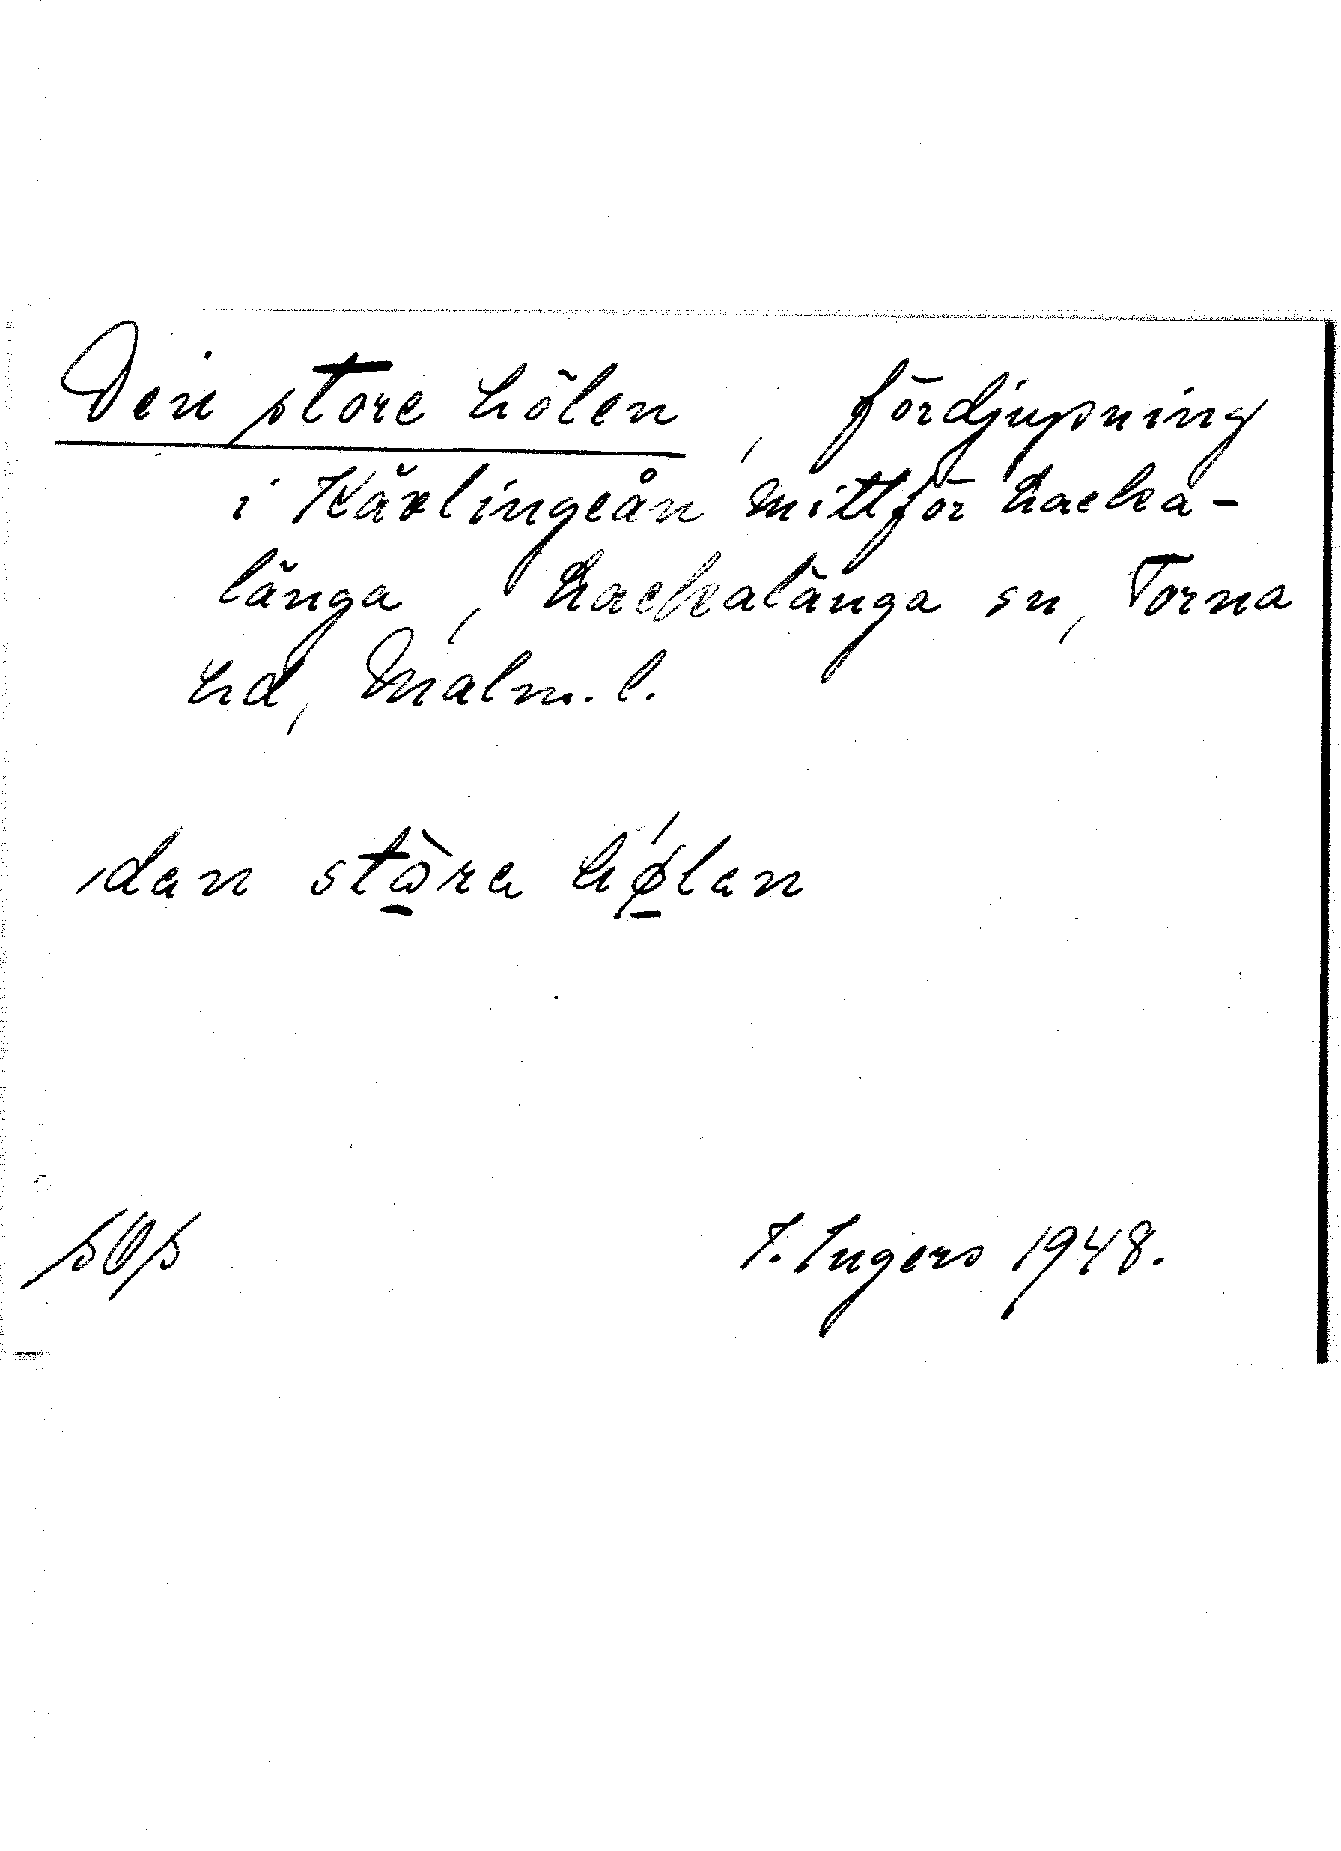 Den store hölen, fördjupning
i Kävlingeån mittför Hacka-
länga, Hackalänga sn, Torna
hd, Malm. l.
dan stòra hǿlan
I. Ingers 1948.